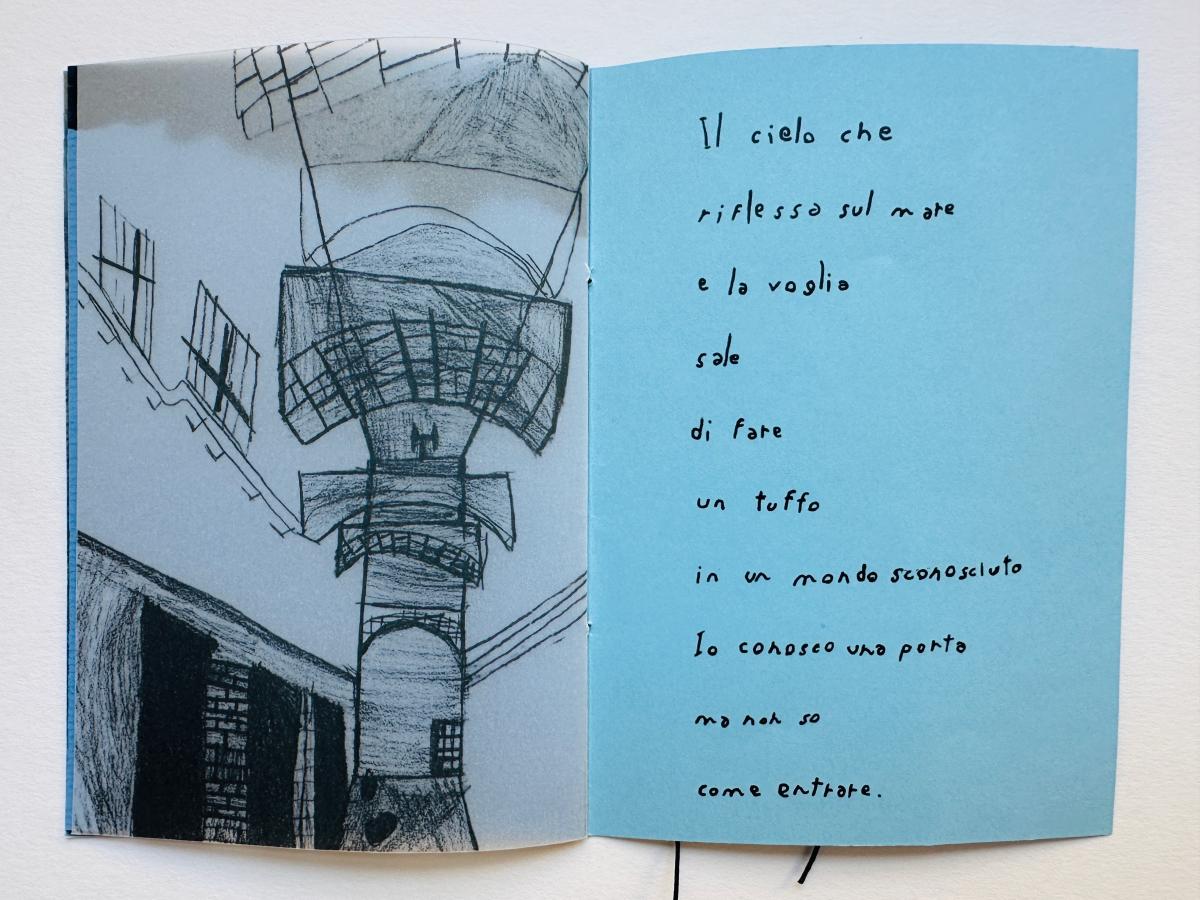 Il cielo che
riflesso sul mare
e la voglia
sale
di fare
un tuffo
in un mondo sconosciuto
Io conosco una porta
ma non so
come entrare.